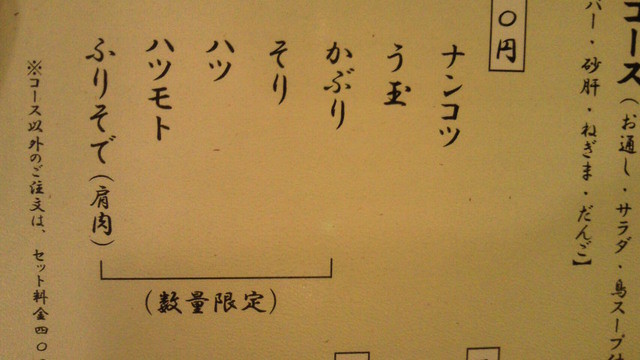 コース（お通し・サラダ・鳥スープ付
バー・砂肝・ねぎま・だんご】
〇円
ナンコツ
う玉
かぶり
そり
ハツ
ハツモト
ふりそで（肩肉）
（数量限定）
※コース以外のご注文は、セット料金四〇